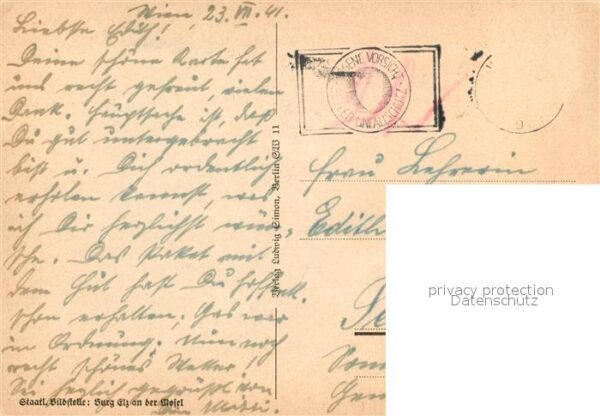 Wien, 23. VII. 41.
Liebste Edith!
Deine schöne Karte hat
uns recht gefreut, vielen
Dank. Hauptsache ist, daß
Du gut untergebracht
bist u. Dich ordentlich
erholen kannst, was
ich Dir herzlichst wün-
sche. Das Paket mit
dem Hut hast Du hoffentl.
schon erhalten. Gas war
in Ordnung. Nun noch
recht schönes Wetter
Sei herzlich gegrüßt von
Staatl. Bildstelle: Burg Elz an der Mosel
Verlag Ludwig Simon, Berlin SW 11
VORSICHT
Frau Lehrerin
Edith
privacy protection
Datenschutz